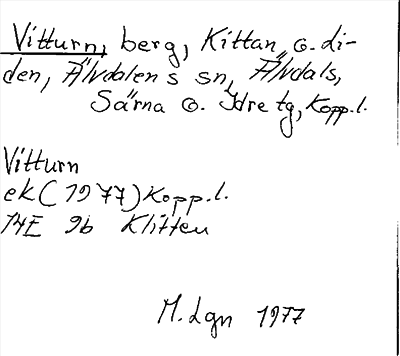 Vitturn, berg, Kittan o. di-
den, Älvdalens sn, Älvdals,
Särna o. Idre tg, Kopp.l.
Vitturn
ek (1977) Kopp.l.
14E 9b Klitten
M. Lgn 1977